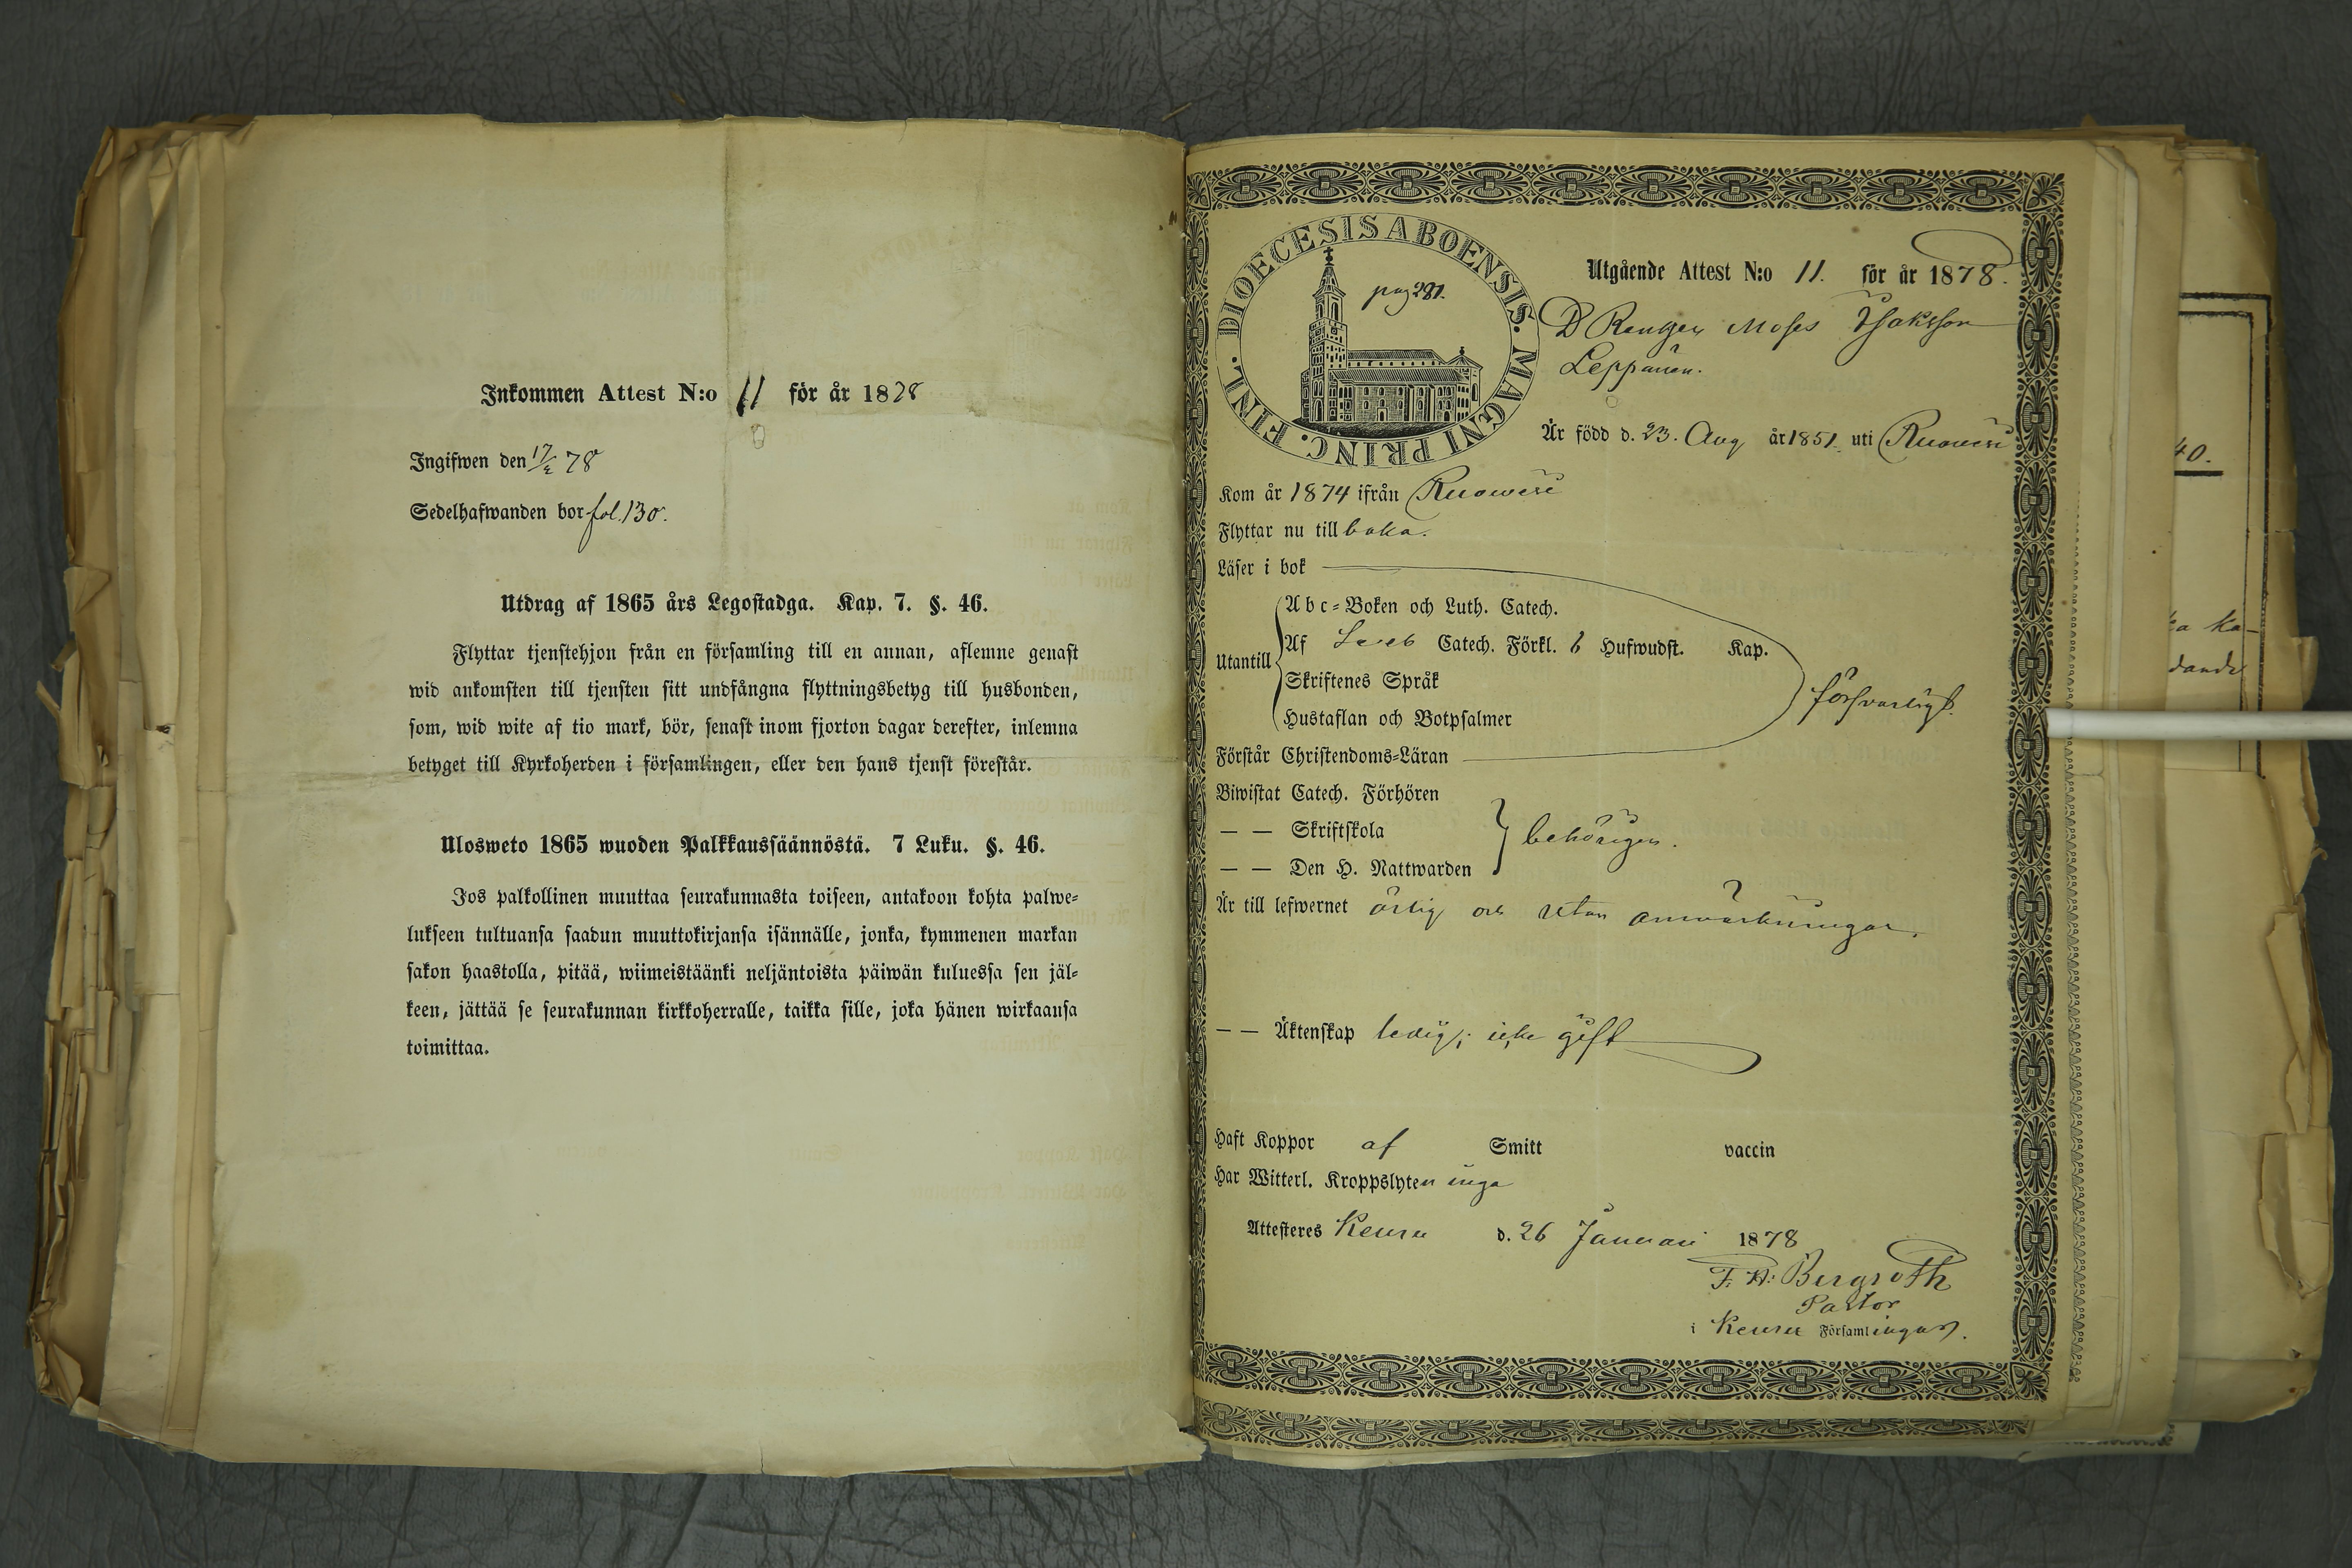 Inkommen Attest N:o 11 för år 1878
Ingifwen den 17/2 78
Sedelhafwanden bor fol. 130.
Utdrag af 1865 års Legostadga. Kap. 7. §. 46.
Flyttar tjenstehjon från en församling till en annan, aflemne genast
wid ankomsten till tjensten sitt undfångna flyttningsbetyg till husbonden,
som, wid wite af tio mark, bör, senast inom fjorton dagar derefter, inlemna
betyget till Kyrkoherden i församlingen, eller den hans tjenst förestår.
Ulosweto 1865 wuoden Palkkaussäännöstä. 7 Luku. §. 46.
Jos palkollinen muuttaa seurakunnasta toiseen, antakoon kohta palwe=
lukseen tultuansa saadun muuttokirjansa isännälle, jonka, kymmenen markan
sakon haastolla, pitää, wiimeistäänki neljäntoista päiwän kuluessa sen jäl=
keen, jättää se seurakunnan kirkkoherralle, taikka sille, joka hänen wirkaansa
toimittaa.
DIOECESIS ABOENSIS. MAGNI PRINC. FINL.
pag 281.
Utgående Attest N:o 11. för år 1878.
D Rengen Moses Isaksson
Leppänen.
Är född d. 23. Aug år 1851. uti Ruowesi
Kom år 1874 ifrån Ruowesi
Flyttar nu till baka.
Läser i bok
Utantill
Abc=Boken och Luth. Catech.
Af Sveb Catech. Förkl. 6 Hufwudst. Kap.
Skriftenes Språk
Hustaflan och Botpsalmer
försvarligt.
Förstår Christendoms=Läran
Biwistat Catech. Förhören
— — Skriftskola
— — Den H. Nattwarden
behörigen.
Är till lefwernet ärlig och utan anmärkningar.
— — Äktenskap ledig; icke gift
Haft Koppor af Smitt vaccin
Har Witterl. Kroppslyten inga
Attesteres Keuru d. 26 Januari 1878
F. H: Bergroth
Pastor
i Keuru Församlingar.
40.